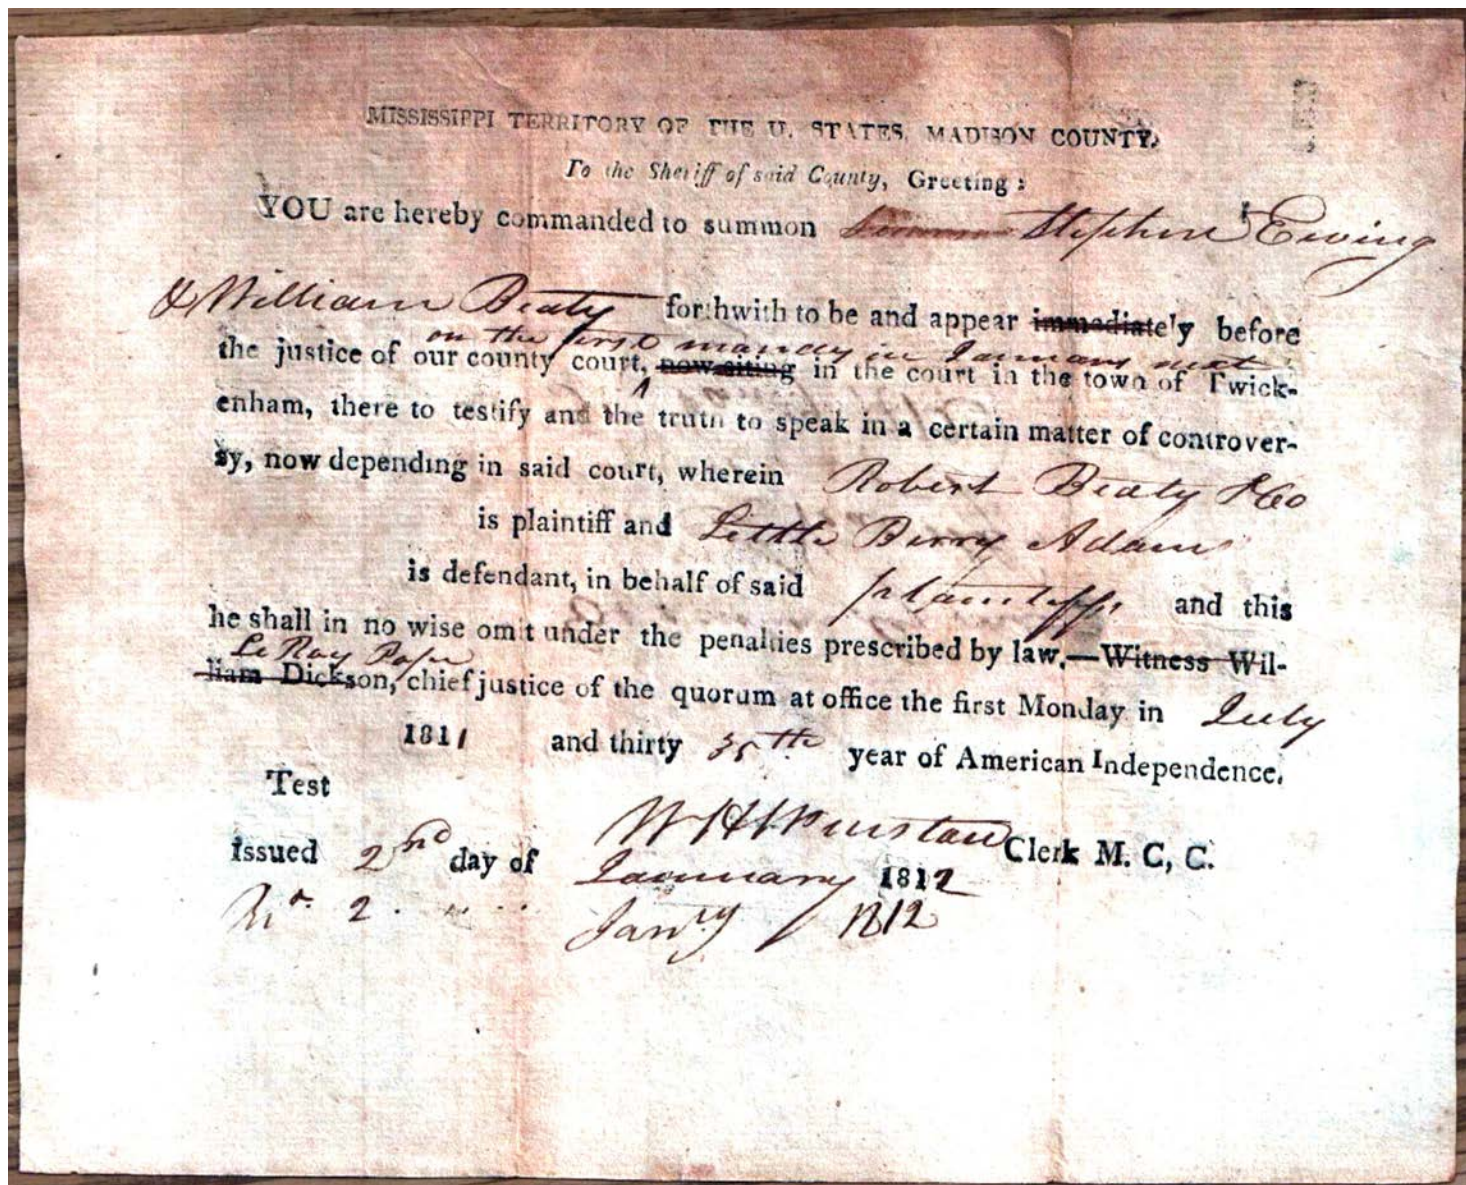 MISSISSIPPI TERRITORY OF THE U. STATES, MADISON COUNTY,
To the Sheriff of said County, Greeting:
YOU are hereby commanded to summon Stephen Ewing
& William Beaty forthwith to be and appear immediately before
on the first monday in January next
the justice of our county court, ^ now siting in the court in the town of Twick-
enham, there to testify and the truth to speak in a certain matter of controver-
sy, now depending in said court, wherein Robert Beaty & Co
is plaintiff and Little Berry Adams
is defendant, in behalf of said plaintiffs and this
he shall in no wise omit under the penalties prescribed by law.—Witness Wil-
LeRoy Pope
liam Dickson, chief justice of the quorum at office the first Monday in July
1811 and thirty 35th year of American Independence.
Test
W H Winston Clerk M. C, C.
Issued 2nd day of January 1812
2 " " Jany 1812